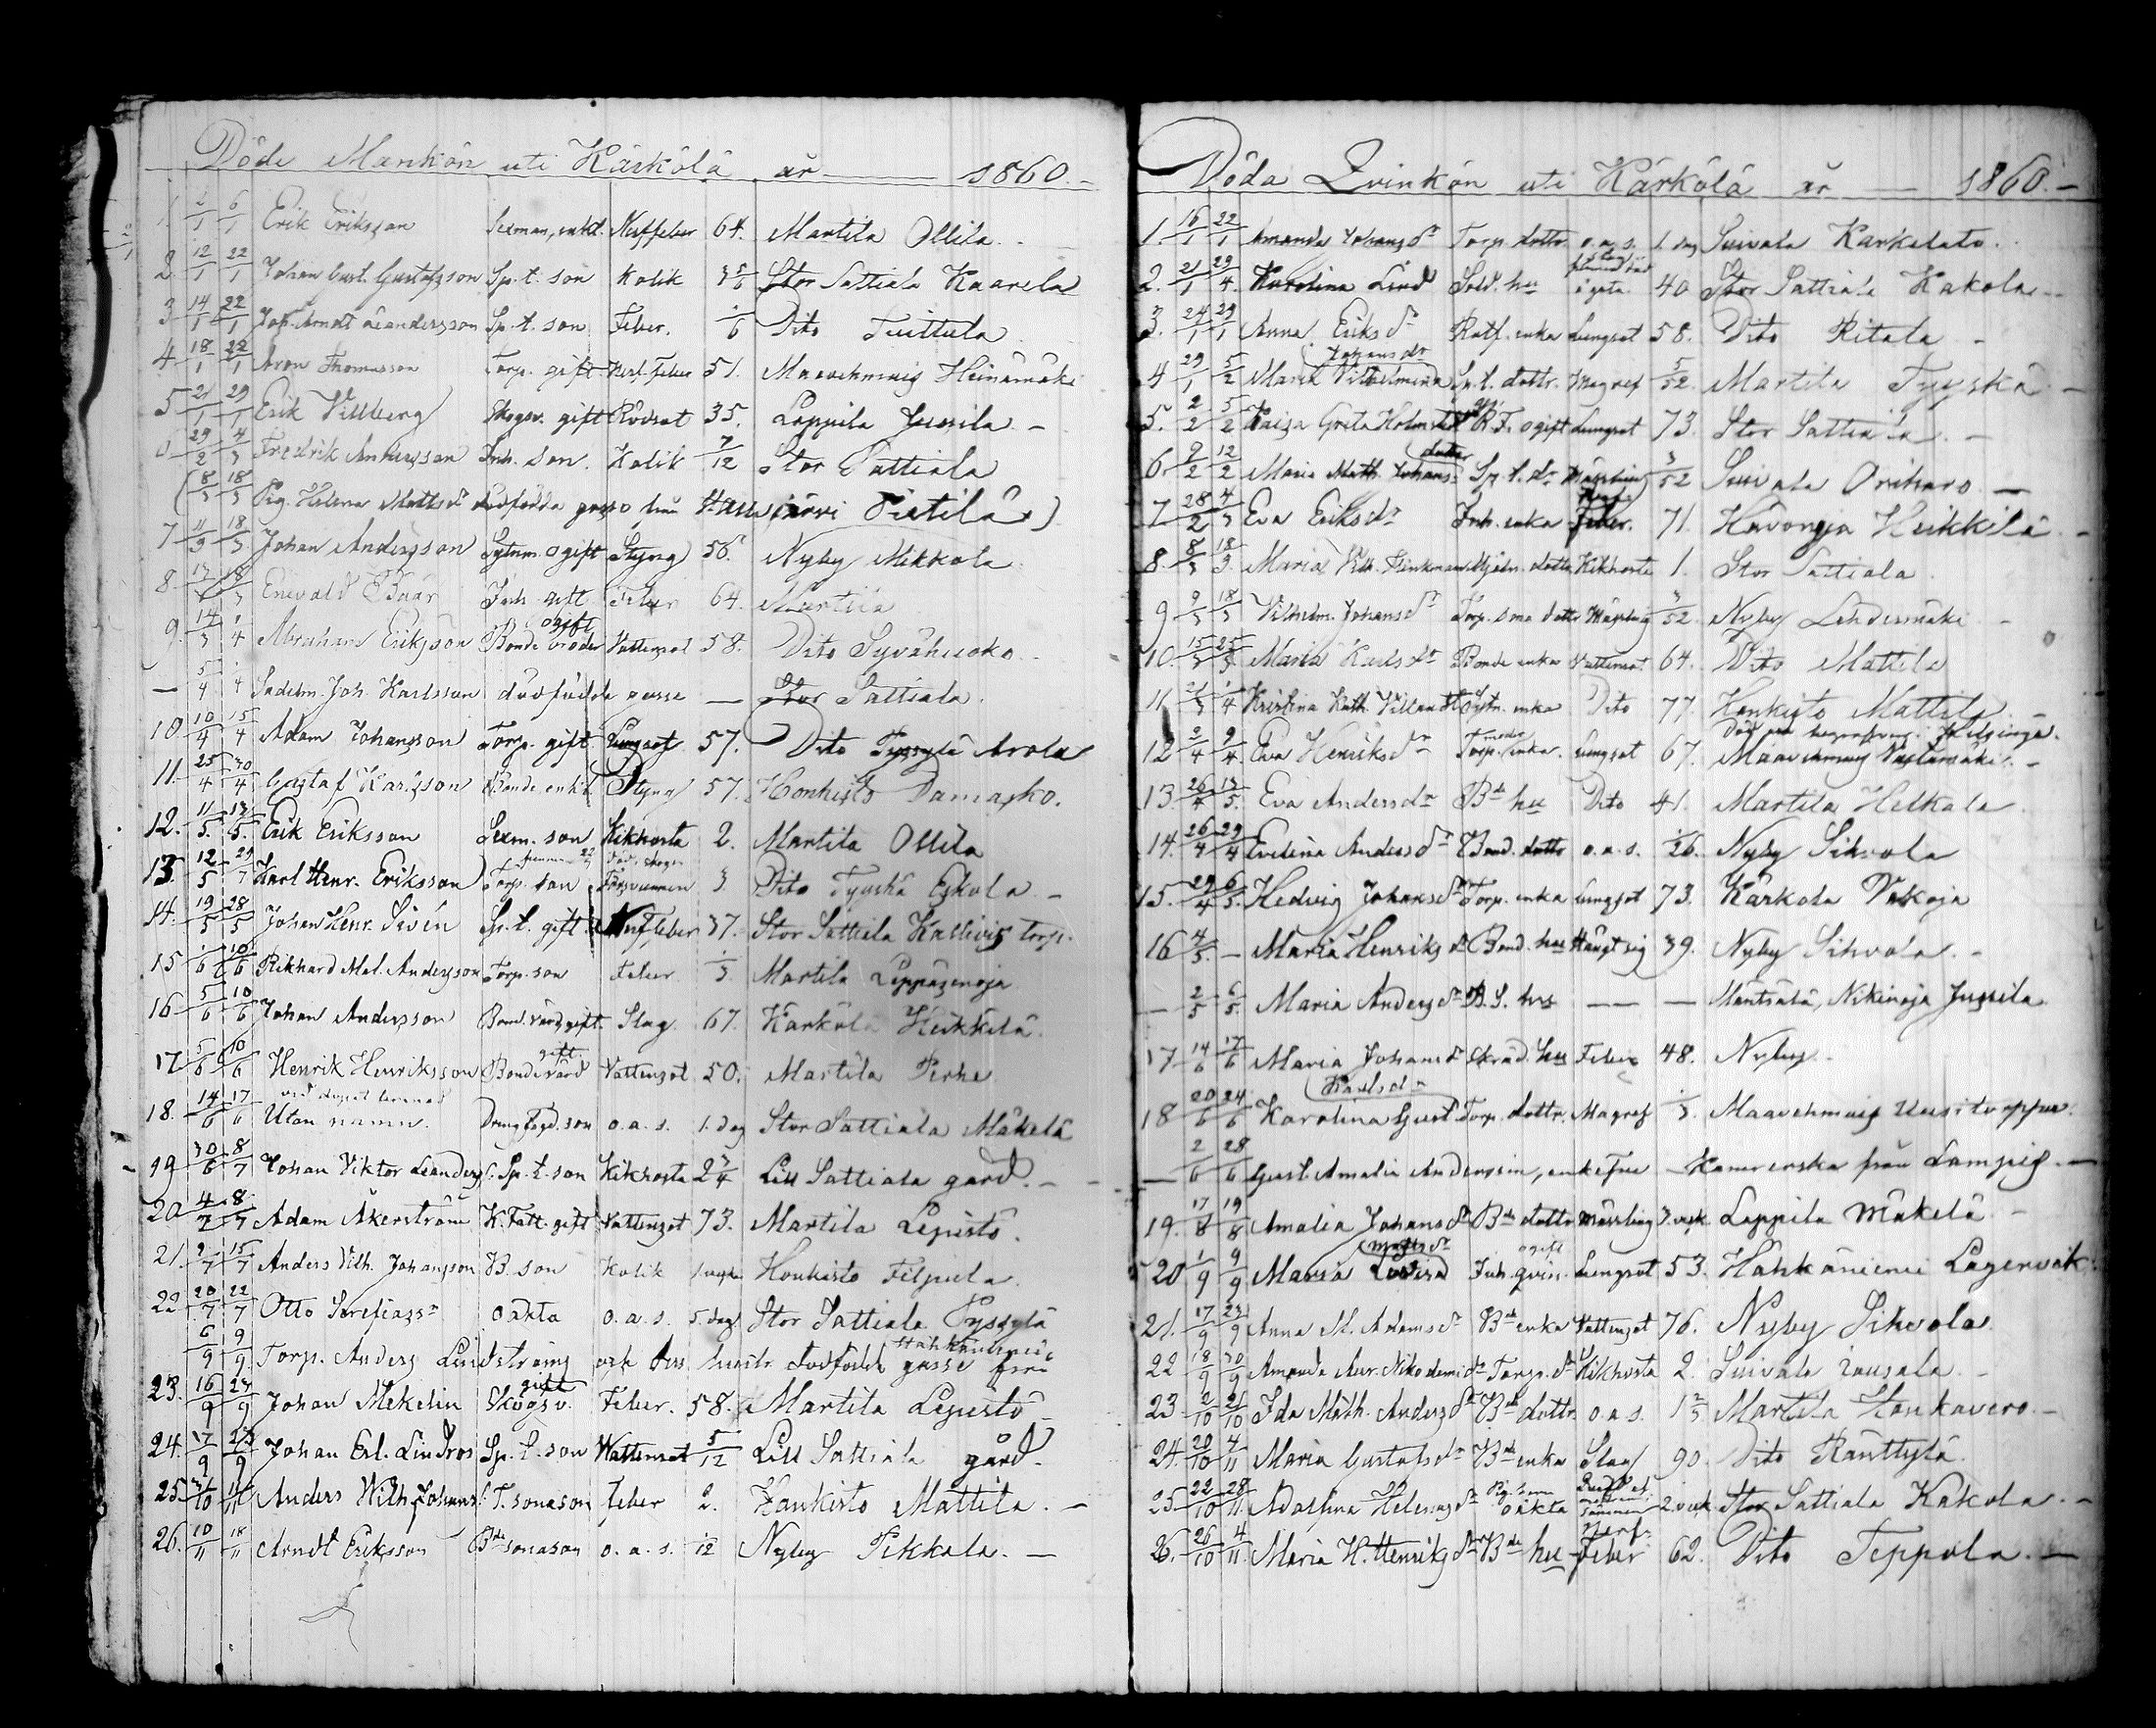 Döde Mankön uti Kärkölä år 1860.
1. 2/1 6/1 Erik Eriksson Sexman, enkl. Nerffeber 64. Martila Ollila.
2. 12/1 22/1 Johan Gust. Gustafsson Sp. t. son Kolik Stor Sattiala Kaarela
3 14/1 22/1 Joh. Arndt Leandersson Sp. t. son Feber. 1/6 Dito Tuittula
4 18/1 22/1 Aron Thomasson Torp. gift Nerf. feber 51. Maavehmaig Heinämäki
5 21/1 29/1 Erik Villberg Skogsv. gift Rödsot 35. Lappila Jussila
6 29/2 4/3 Fredrik Andersson Inh. son. Kolik 7/12 Stor Sattiala
(8/3 18/3 Pig. Helena Matts dr dödfödda gosse från Järvi Pietilä)
7 11/3 18/3 Johan Andersson Sytnm. ogift Styng 56. Nyby Mikkola
8. 13/3 18/3 Enevald Baar Inh. gift Feber 64. Martila
9. 14/3 1/4 Abraham Eriksson Bonde broder ogift Vattensot 58. Dito Syvähuoko
— 5/4 Sadelm. Joh. Karlsson dödfödde gosse — Stor Sattiala.
10 10/4 15/4 Adam Johansson Torp. gift Lungsot 57. Dito Tyystä Arola
11. 25/4 30/4 Gustaf Karlsson Bonde enkl. Styng 57. Honkisto Damasko.
12. 11/5. 13/5. Erik Eriksson Sexm. son Kikhosta 2. Martila Ollila
13. 12/5 29/7 Karl Henr. Eriksson Torp. son Försvunnen 3. Dito Tyyskä Eskola
14. 19/5 28/5 Johan Henr. Sivén Sp. t. gift. Nerffeber 37. Stor Sattiala torp.
15 1/6 10/6 Rikhard Mel. Andersson Torp. son Feber 1/3 Martila Leppäsenoja
16 5/6 10/6 Johan Andersson Bond. värd gift. Slag. 67. Kärkölä Heikkilä.
17 5/6 10/6 Henrik Henriksson Bondevärd gift. Vattensot 50. Martila Pirhe
18. 14/6 17/6 Utan namn. Drengfogd. son o. a. s. 1. dag Stor Sattiala Mäkelä
19 30/6 8/7 Johan Viktor Leanders. Sp. t. son Kikhosta 2 3/4 Lill Sattiala gård.
20 4/7 8/7 Adam Åkerström K. Fatt. gift Vattensot 73. Martila Lepistö.
21. 9/7 15/7 Anders Vilh. Johansson B. son Kolik Honkisto Filpula.
22 20/7 22/7 Otto oäkta o. a. s. 5. dag. Stor Sattiala
6/9 9/9. Torp. Anders Lindströms och hustr. dödfödde gosse från Hähkäniemi
23. 16/9 23/9 Johan Mekelin Skogsv. gift Feber. 58. Martila Lepistö
24. 17/9 23/9 Johan Erl. Lindros Sp. t. son Wattensot 5/12 Lill Sattiala gård.
25. 11/11 Anders Wilh. Johans. T. sonason feber 2. Hankisto Mattila.
26. 10/11 18/11 Arndt Eriksson Bde sonason o. a. s. 1/12 Nyby Pikkala.
Döda Qvinkön uti Kärkölä år 1860.
1. 16/1 22/1 Amanda Johans dr Torp. dottr o. a. s. 1. dag Suivala Karkelato.
2. 21/1 29/4. Karolina Lind Sold. hu 40 Stor Sattiala Kakola
3. 24/1 29/1 Anna Eriks dr Rotf. enka Lungsot 58. Dito Ritala
4 29/1 5/2 Maria Vilhelmina Johans dr Sp. t. dottr. Magref 5/52. Martila Tyyskä
5. 2/2 5/2 Kaisa Greta Holmsted R. F. ogift Lungsot 73. Stor Sattiala
6. 9/2 12/2 Maria Math. Johans. dotter Sp. t. dr Mässling 3/52 Suivala Oriharo
7 28/2 4/3 Eva Eriks dr Inh. enka Feber. 71. Hävonoja Heikkilä
8. 8/3 18/3. Maria Vilh. Hinkman Mjöln. dottr Kikhosta 1. Stor Sattiala
9 9/3 18/3 Vilhelm. Johans dr Torp. sons dottr Mässling 3/52. Nyby Lehdesmäki
10. 15/3 25/3 Maria Karls dr Bonde enka Vattensot 64. Dito Mattila
11 1/4 Kristina Kath. Sytn. enka Dito 77. Honkisto Mattila.
12 2/4 9/4. Eva Henriks dr Torp. enka. Lungsot 67. Maavehmaig
13. 26/4 13/5. Eva Anders dr Bde hu Dito 41. Martila Helkala
14. 26/4 29/4 Evelina Anders dr Bond. dottr o. a. s. 1/26. Nyby Sihvola
15. 29/4 6/5. Hedvig Johans dr Torp. enka Lungsot 73. Kärkölä Vakoja
16 4/5. — Maria Henriks dr Bond. hu Hängt sig 39. Nyby Sihvola.
— 2/5 6/5. Maria Anders dr B. S. hu — — Mäntsälä, Nikinoja Jussila
17 14/6 17/6 Maria Johans dr Skräd. hu Feber 48. Nyby
18 20/6 24/6 Karolina Gust Karls dr Torp. dottr. Magref 1/3. Maavehmaig Uusitorppa.
— 2/6 28/6 Gust. Amalia Andersin, enkefru — Kamrerska från Lampis.
19. 17/8 19/8 Amalia Johans dr Bde dottr Mässling 3. vek. Lappila Mäkelä
20 1/9 9/9 Maria Lovisa Matts dr Inh. qvin. ogift Lungsot 53. Hähkäniemi Lagervik.
21. 17/9 23/9 Anna M. Adams dr Bde enka Vattensot 76. Nyby Sihvola
22 18/9 30/9 Amanda Aur. Nikodemi dr Torp. dr Kikhosta 2. Suivala Uusitalo
23. 2/10 21/10 Ida Math. Anders dr Bde dottr. o. a. s. 1 2/3 Martila Honkavero
24. 20/10 4/11 Maria Gustafs dr Bde enka Slag 90 Dito Ränttylä
25. 22/10 28/11. Adolfina Helenas dr oäkta 2. vek. Stor Sattiala Kakola.
26. 26/10 4/11. Maria H. Henriks dr Bde hu Nerf. feber 62. Dito Teppola.